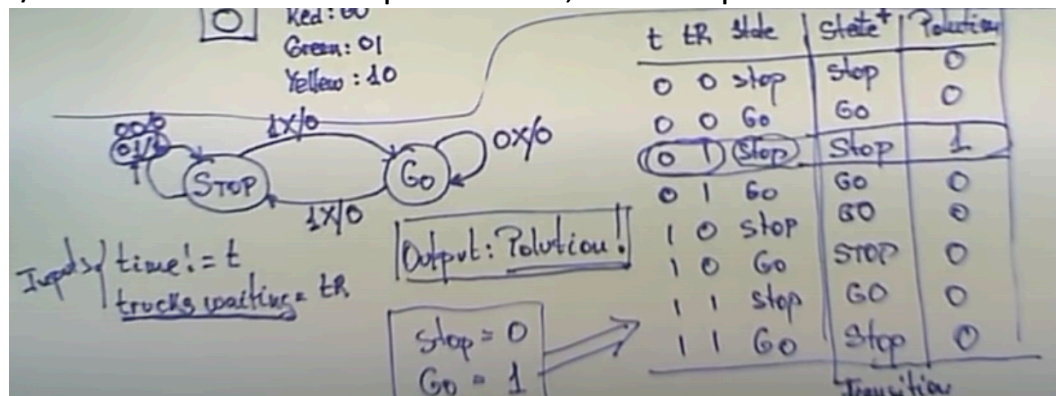 Red: 00
Green: 01
Yellow: 10
00/0
01/1
1X/0
0X/0
STOP
Go
1X/0
Inputs
time! = t
trucks waiting = tR
Output: Polution!
Stop = 0
Go = 1
t tR State State+ Polution
0 0 stop stop 0
0 0 Go Go 0
0 1 Stop Stop 1
0 1 Go Go 0
1 0 stop GO 0
1 0 Go STOP 0
1 1 stop GO 0
1 1 Go Stop 0
Transition